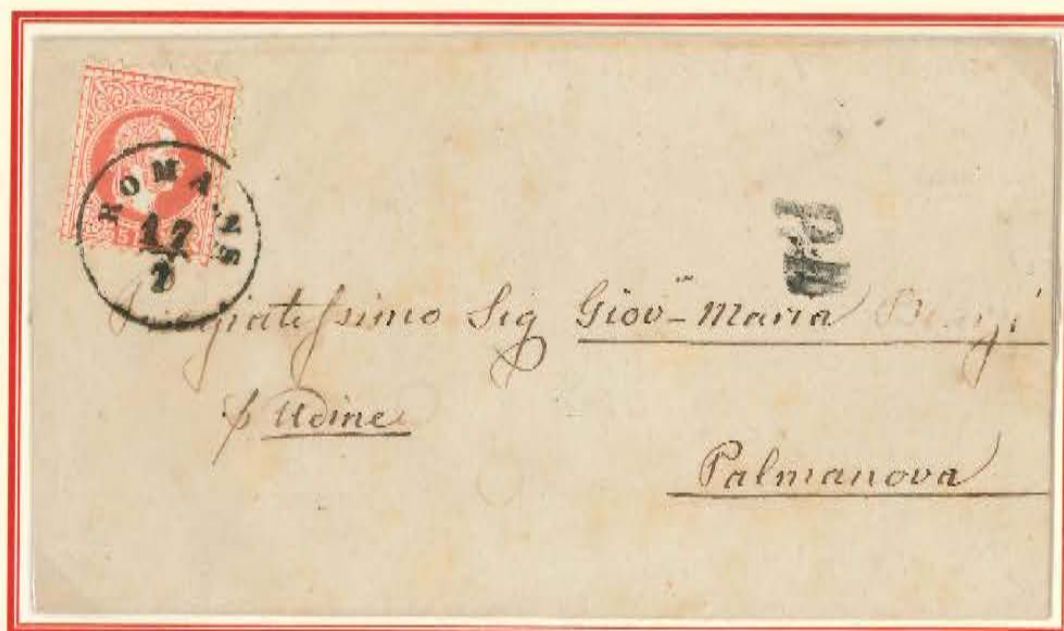 ROMANS
17
2
P.D.
Pregiatissimo Sig Giovⁿ Maria
p Udine
Palmanova